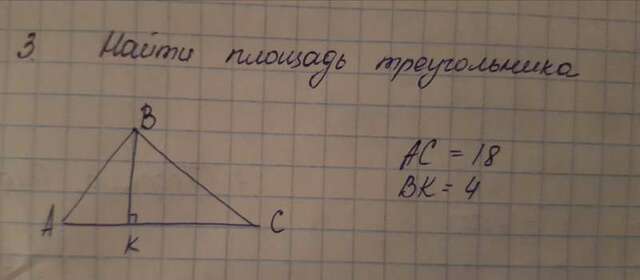 3. Найти площадь треугольника
B
AC = 18
BK = 4
A
C
K